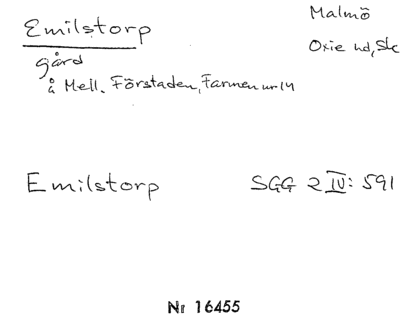 Emilstorp
Malmö
Oxie hd, Sk
gård
å Mell. Förstaden, Farmen nr 14
Emilstorp
SGG 2 IV: 591
Nr 16455